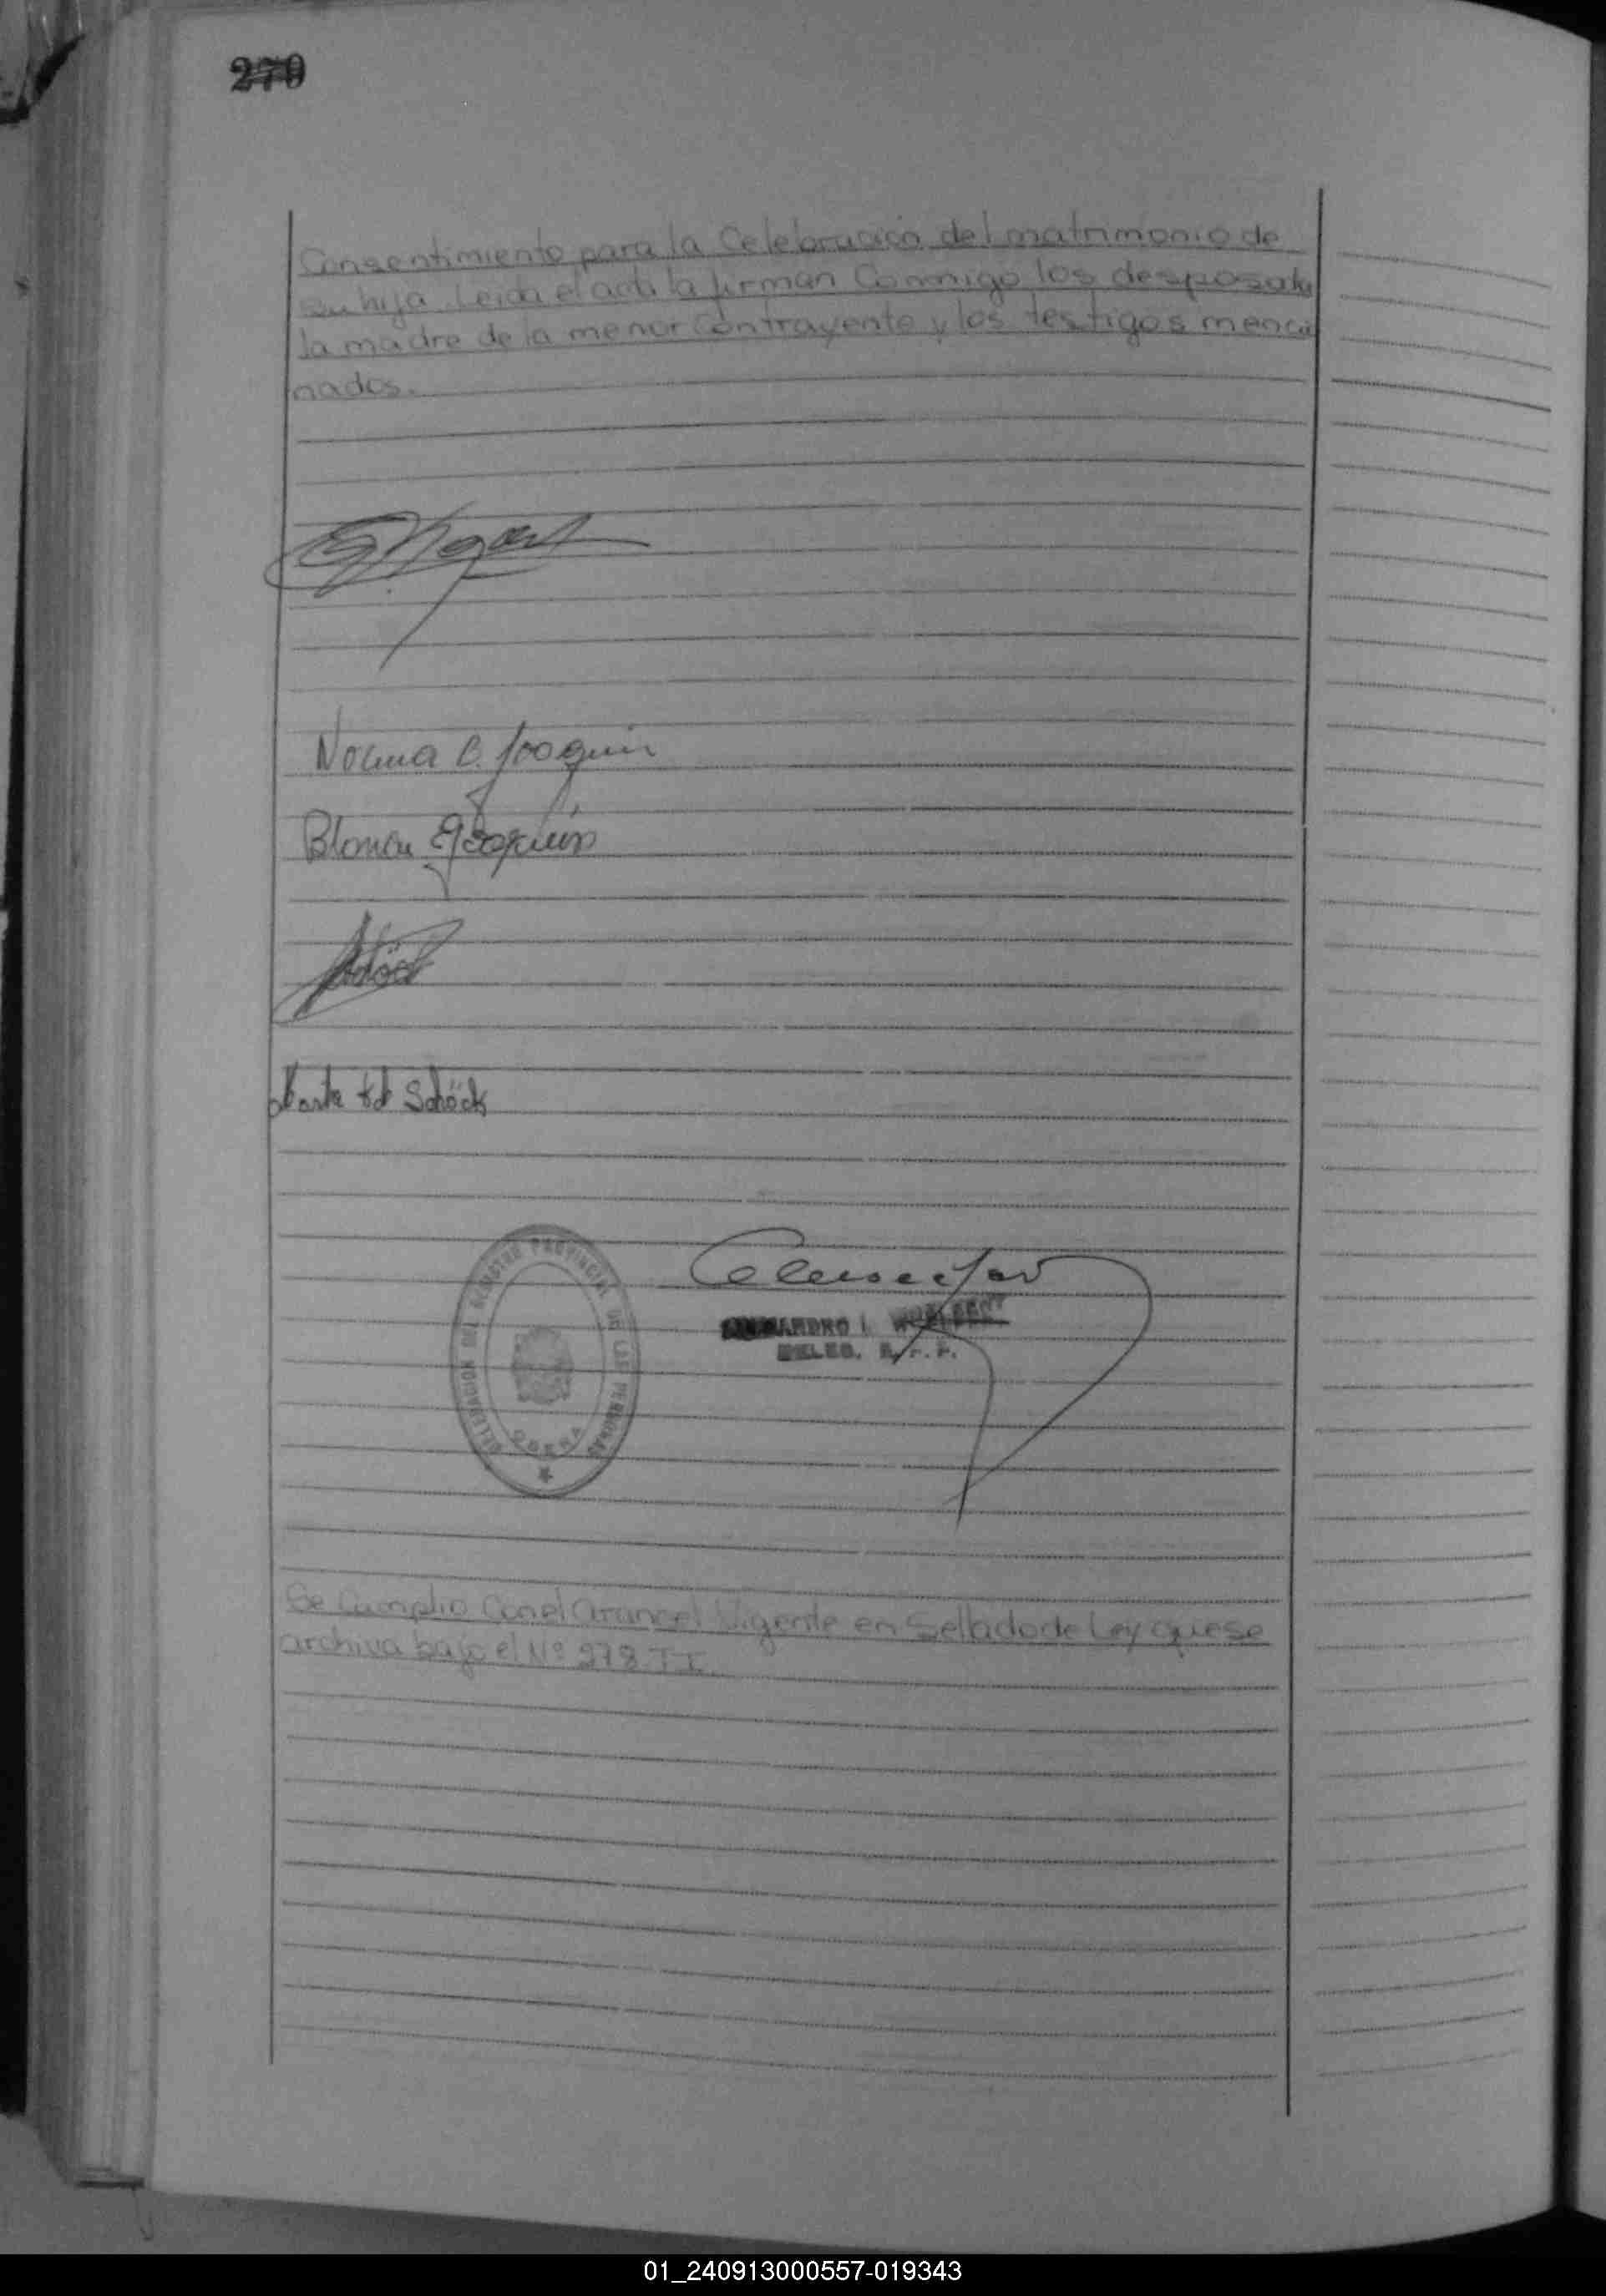 270
Consentimiento para la Celebración del matrimonio de
su hija. Leida el acta la firman Conmigo los desposados
la madre de la menor Contrayente y los testigos mencio
nados.
Norma C. Joaquin
Blanca E Joaquin
Schöck
DELEGACION DEL REGISTRO PROVINCIAL DE LAS PERSONAS
OBERA
DELEG. R. P. P.
Se Cumplio Con el arancel Vigente en Sellado de Ley que se
archiva bajo el Nº 278 T I.
01_240913000557-019343